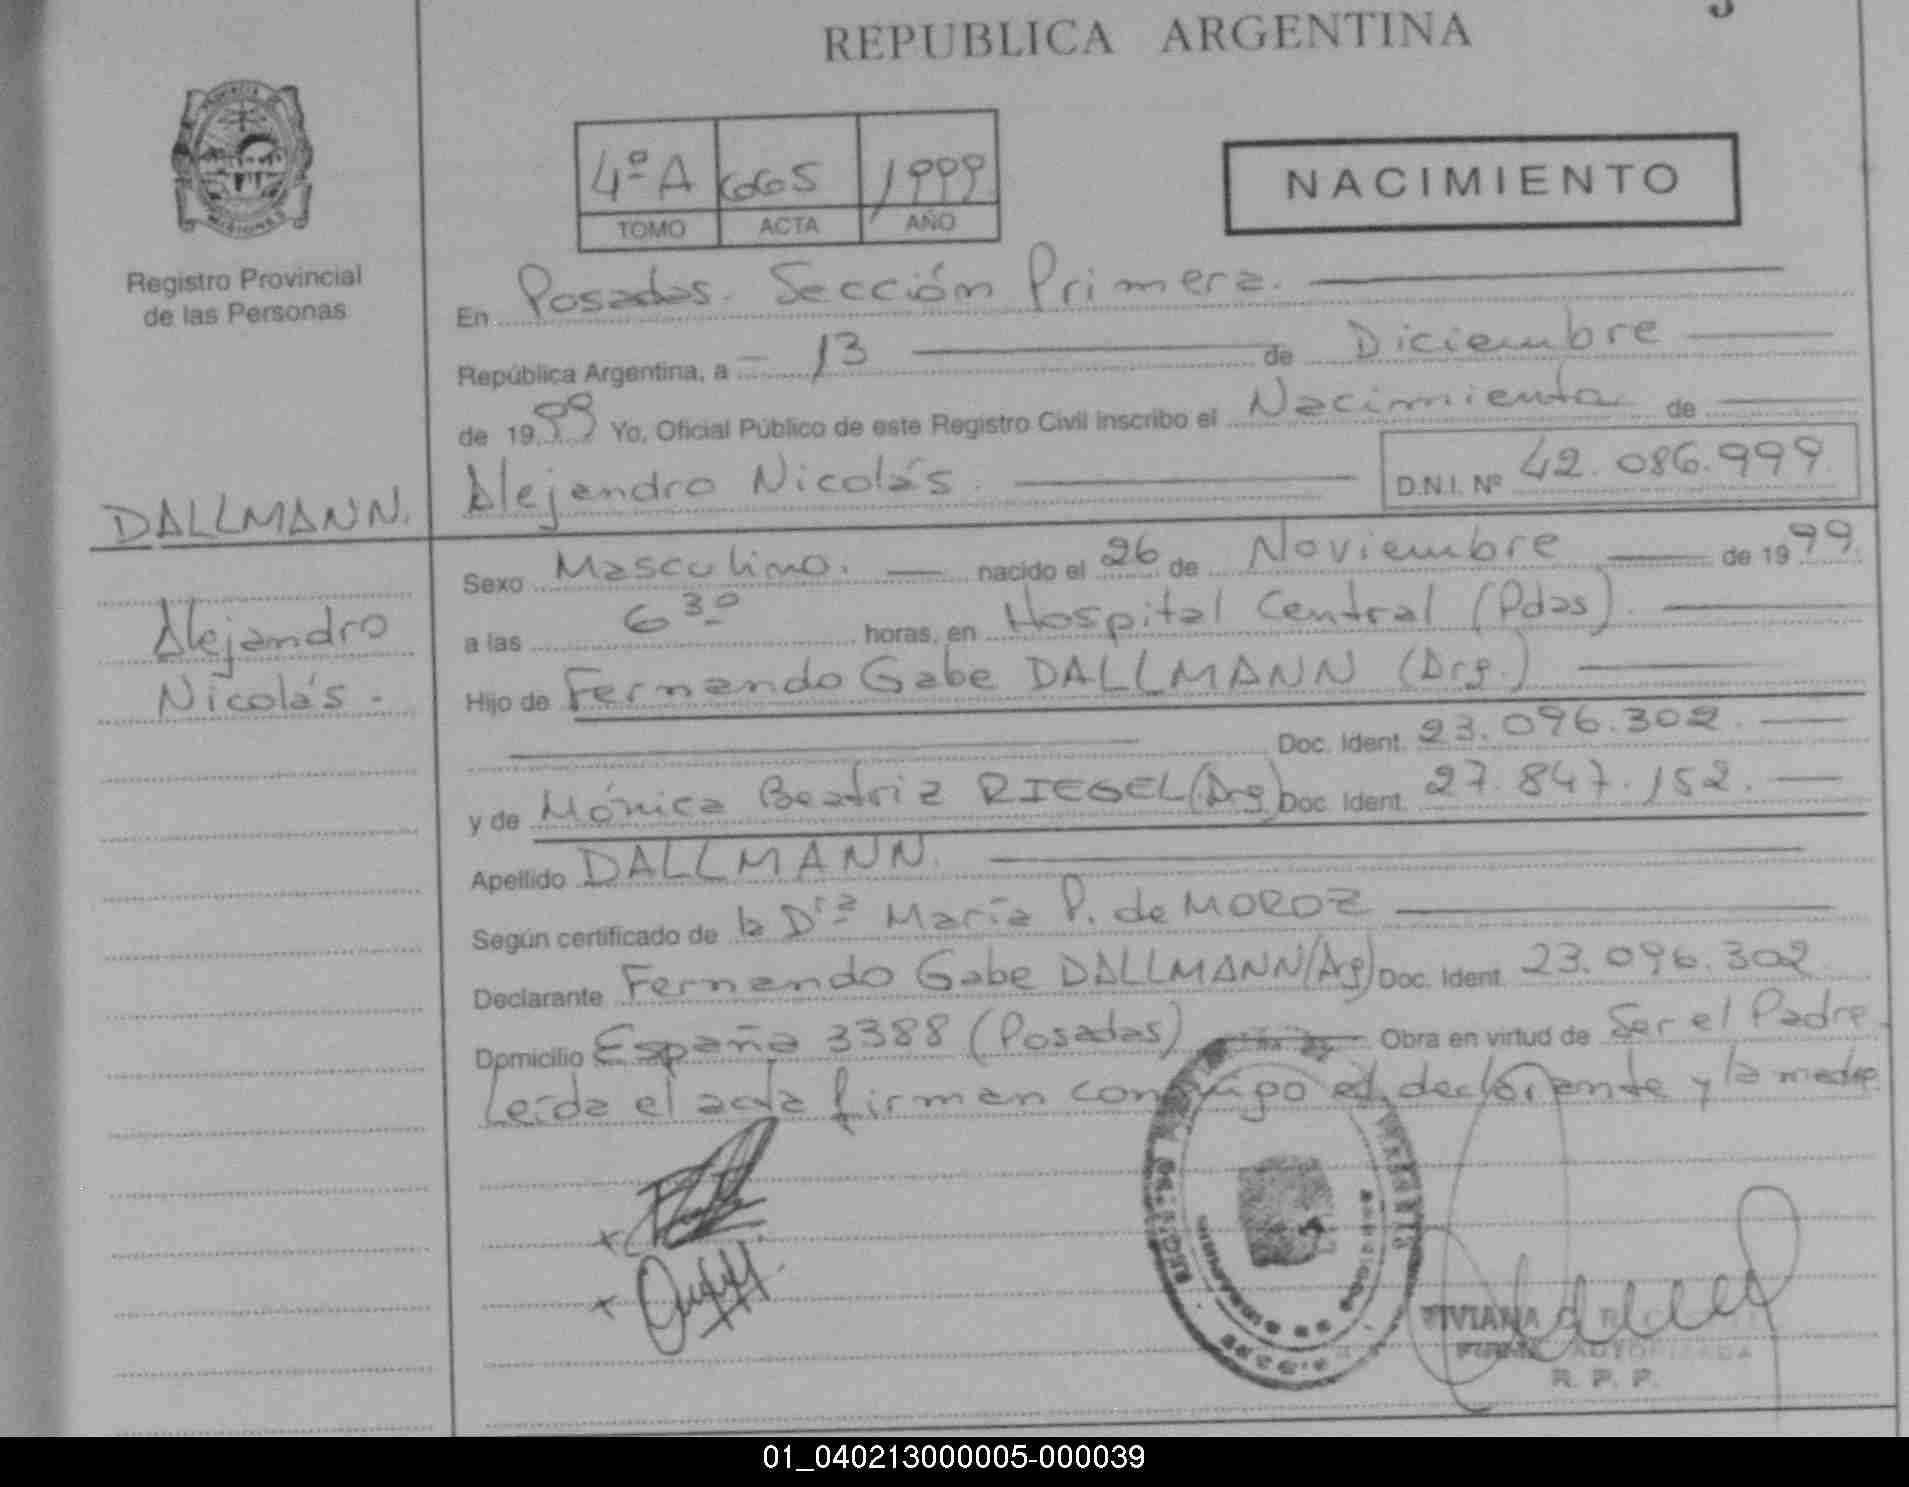 REPUBLICA ARGENTINA
PROVINCIA DE MISIONES
Registro Provincial
de las Personas
4º A 665 1999
TOMO ACTA AÑO
NACIMIENTO
En Posadas. Sección Primera.
República Argentina, a 13 de Diciembre
de 1999 Yo, Oficial Público de este Registro Civil inscribo el Nacimiento de
Alejandro Nicolás. D.N.I. Nº 42.086.999
DALLMANN.
Alejandro
Nicolás.
Sexo Masculino. nacido el 26 de Noviembre de 1999.
a las 6 30 horas, en Hospital Central (Pdas).
Hijo de Fernando Gabe DALLMANN (Arg.)
Doc. Ident. 23.096.302.
y de Mónica Beatriz RIEGEL (Arg) Doc. Ident. 27.847.152.
Apellido DALLMANN.
Según certificado de la Dra María P. de MOROZ
Declarante Fernando Gabe DALLMANN (Arg) Doc. Ident. 23.096.302
Domicilio España 3388 (Posadas) Obra en virtud de Ser el Padre.
Leída el acta firman conmigo el declarante y la madre
VIVIANA
FIRMA AUTORIZADA
R. P. P.
01_040213000005-000039